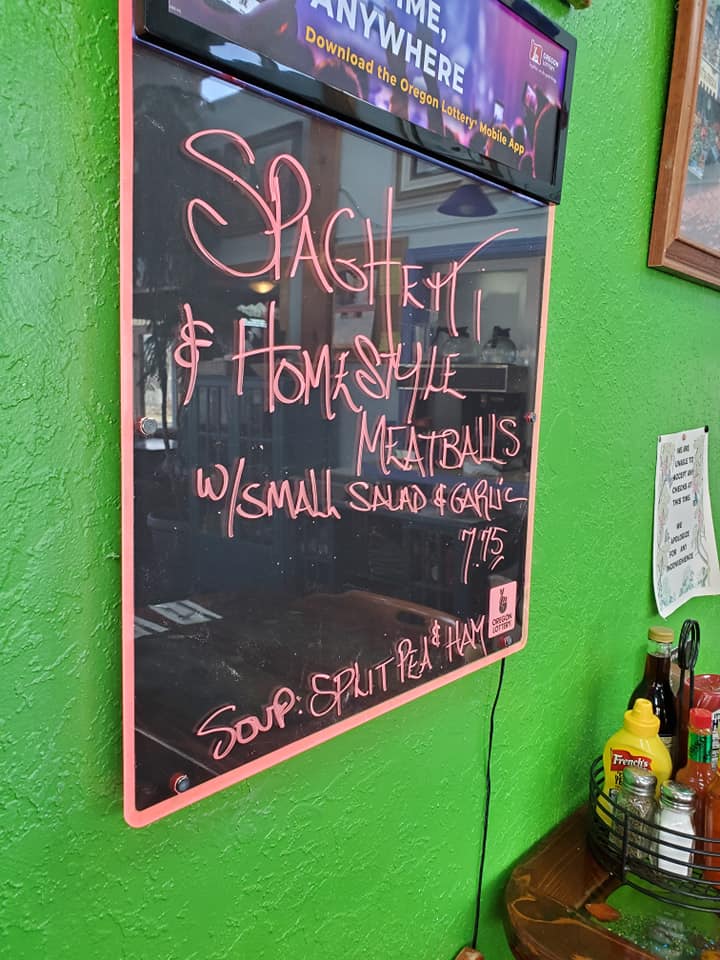 TIME,
ANYWHERE
Download the Oregon Lottery® Mobile App
OREGON
LOTTERY
SPAGHETTI
& HOMESTYLE
MEATBALLS
W/SMALL SALAD & GARLIC
7.75
OREGON
LOTTERY
SOUP: SPLIT PEA & HAM
WE ARE
UNABLE TO
ACCEPT ANY
CHECKS AT
THIS TIME.
WE
APOLOGIZE
FOR ANY
INCONVENIENCE.
French's